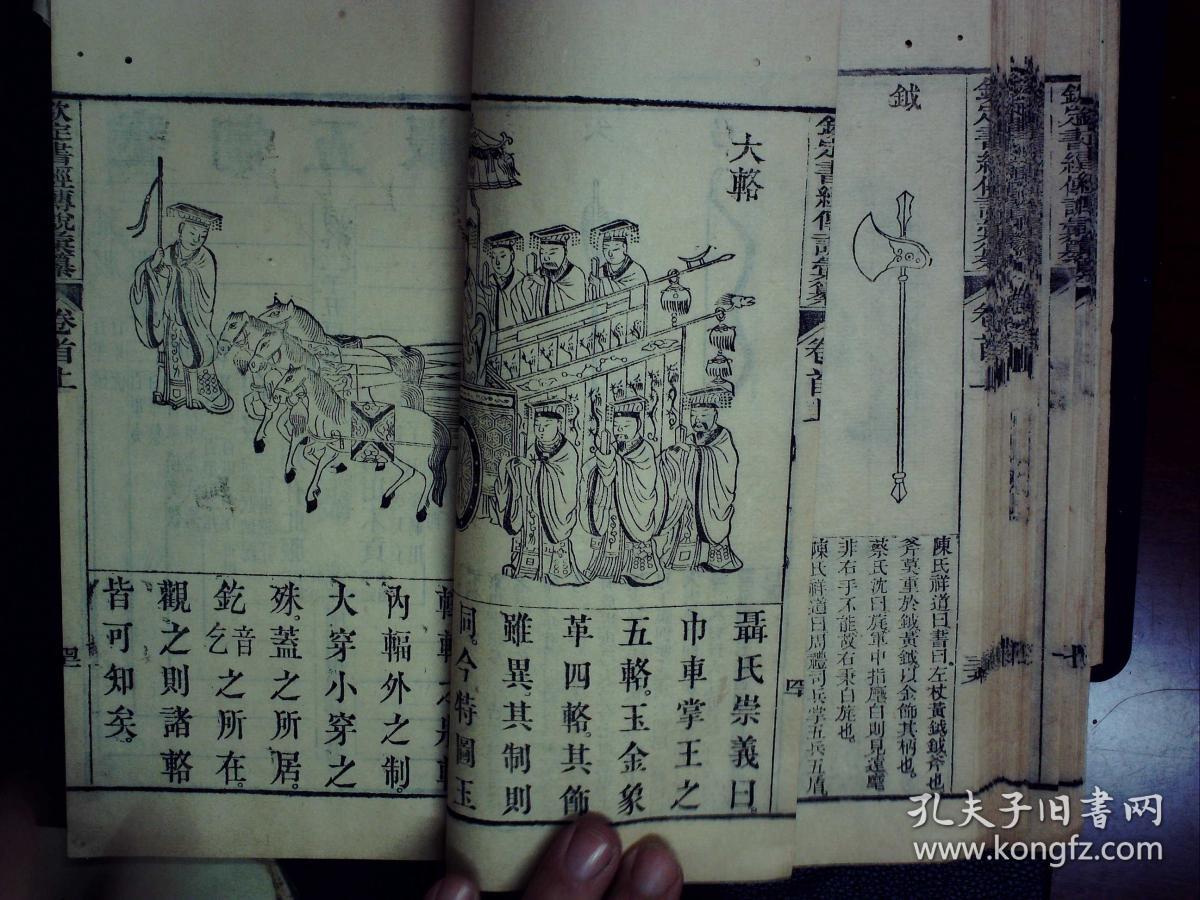 鉞
陳氏祥道曰書曰左杖黃鉞鉞斧也
斧莫重於鉞黃鉞以金飾其柄也
蔡氏沈曰
非右手不能故右秉白旄也
陳氏祥道曰周禮司兵掌五兵五盾
大輅
聶氏崇義曰
巾車掌王之
五輅玉金象
革四輅其飾
雖異其制則
同今特圖玉
內輻外之制
大穿小穿之
殊蓋之所居
釳音乞之所在
觀之則諸輅
皆可知矣
欽定書經傳說彙纂
卷首上
欽定書經傳說彙纂
卷首上
孔夫子旧书网
www.kongfz.com